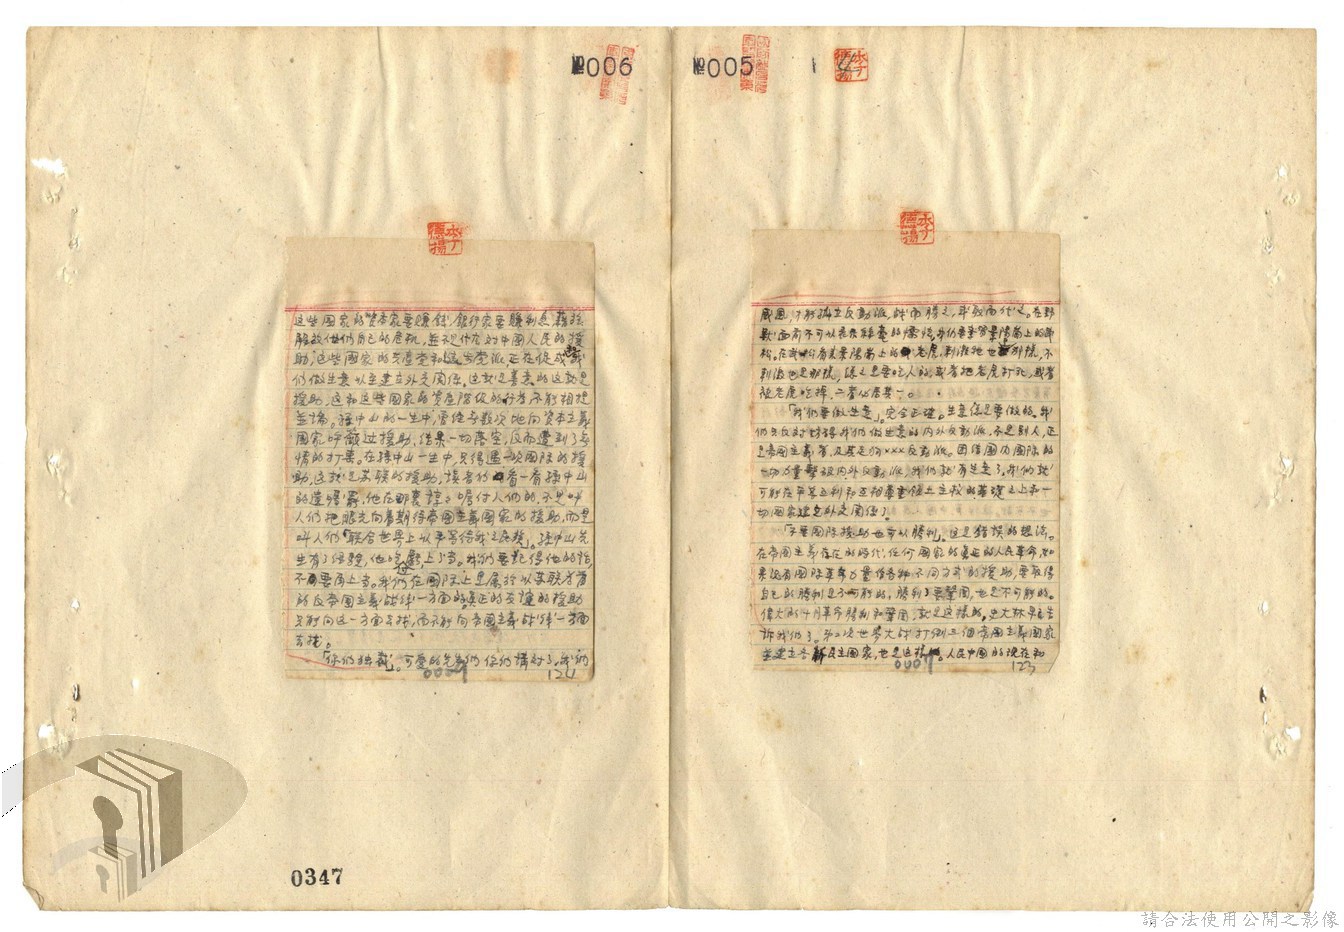 №005
李德揚
李德揚
威風，才能孤立反動派，战而勝之，或取而代之。在野
獸面前不可以表示絲毫的懦怯。我们要学景陽崗上的武
松。在武松看來景陽崗上的老虎，刺激牠也那樣，不
刺激也是那樣，總之是要吃人的。或者把老虎打死，或者
被老虎吃掉，二者必居其一。
「我们要做生意」。完全正確。生意總是要做的。我
们只反对妨碍我们做生意的内外反動派，不是别人，正
是帝國主義者及其走狗×××反動派。团结國内國际的
一切力量擊破内外反動派，我们就有生意了，我们就
可能在平等互利和互相尊重领土主权的基礎之上和一
切國家建立外交関係了。
「不要國际援助也可以勝利」。这是錯误的想法。
在帝國主義存在的時代，任何國家的真正的人民革命，如
果沒有國际革命力量在各种不同方式的援助，要取得
自己的勝利是不可能的。勝利了要鞏固，也是不可能的。
偉大的十月革命勝利和鞏固，就是这樣的，史大林早已告
訴我们了。第二次世界大战打倒三個帝國主義國家
並建立各新民主國家，也是这樣。人民中國的现在和
0007
123
№006
李德揚
这些國家的資本家要賺錢，銀行家要賺利息，藉以
解救他们自己的危机，並非什么对中國人民的援
助。这些國家的共產党和進步党派正在促成我
们做生意以至建立外交関係。这就是善意的这就是
援助，这和这些國家的資產階級的行為不能相提
並論。孫中山的一生中，曾经無数次地向資本主義
國家呼籲过援助，结果一切落空，反而遭到了無
情的打擊。在孫中山一生中，只得過一次國际的援
助，这就是苏联的援助，讀者们看一看孫中山
的遺嘱罷，他在那裏諄々嘱付人们的，不是叫
人们把眼光向着期待帝國主義國家的援助，而是
叫人们「联合世界上以平等待我之民族」。孫中山先
生有了经驗，他吃虧，上过当。我们要記得他的話，
不要再上当。我们在國际上是属於以苏联为首
的反帝國主義战線一方面的，真正的友誼的援助
只能向这一方面去找，而不能向帝國主義战線一方面
去找。
「你们独裁」。可愛的先生们，你们講对了，我们
0009
124
0347
請合法使用公開之影像